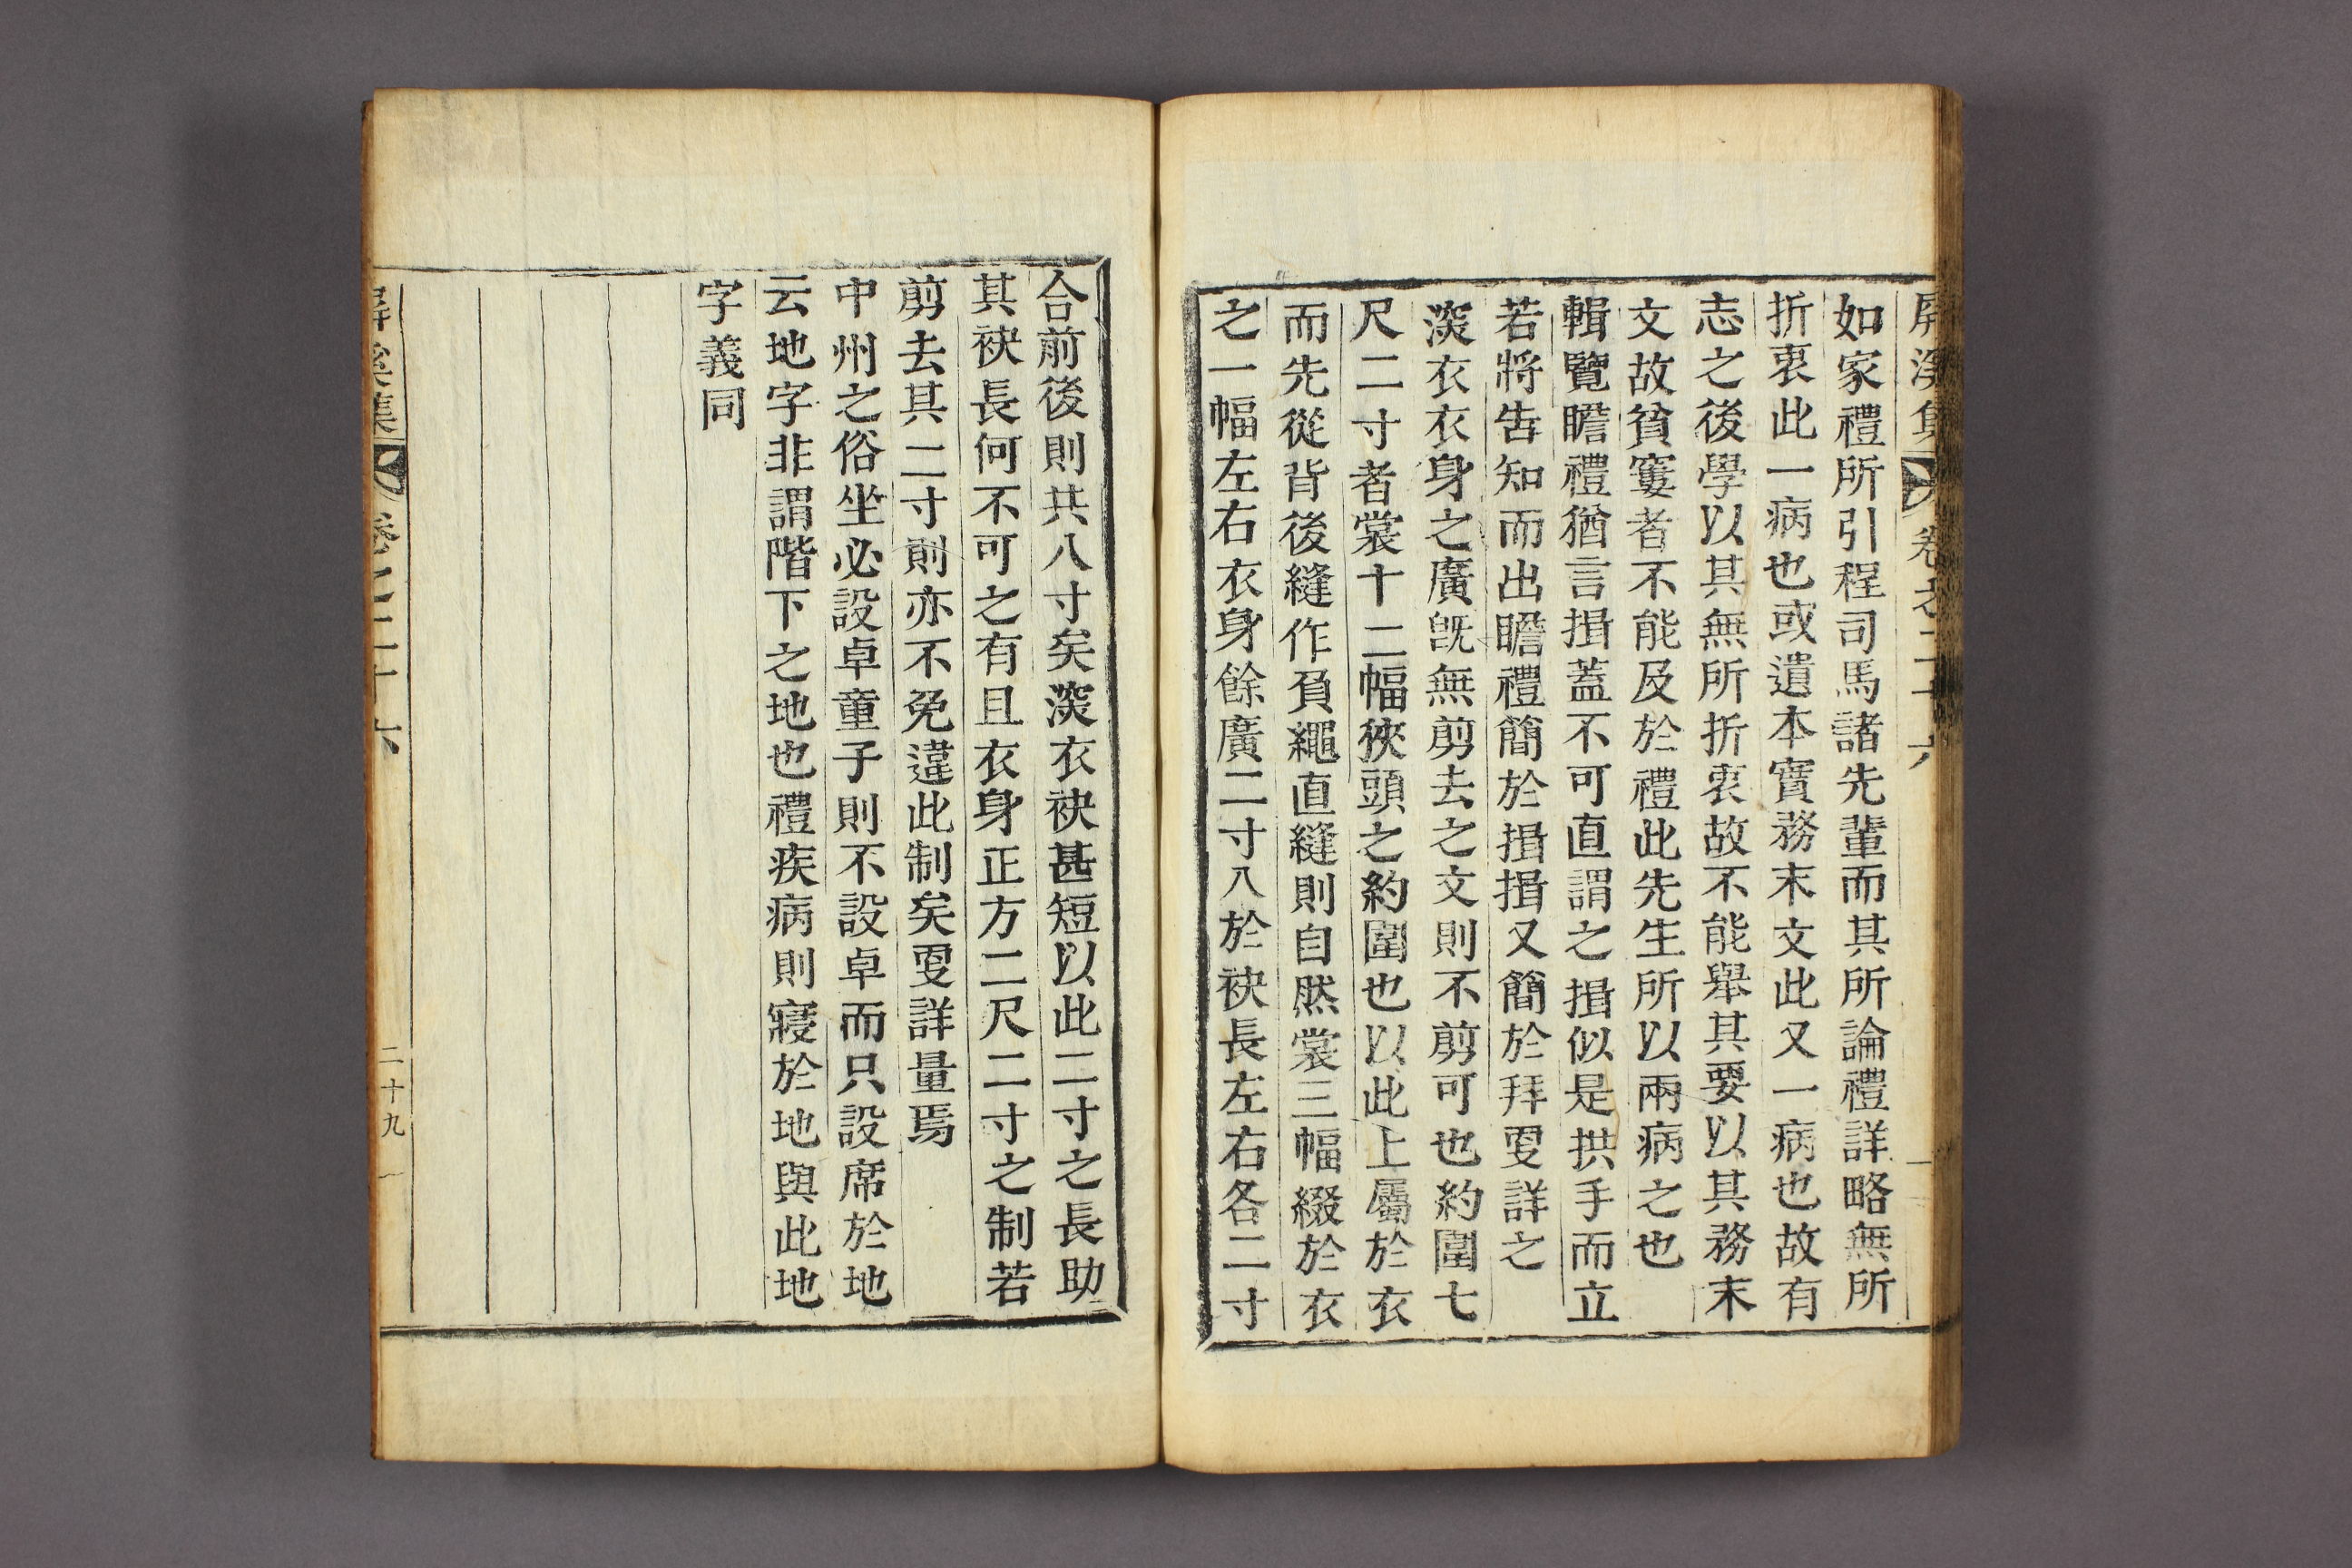 屛溪集 卷之二十六
如家禮所引程司馬諸先輩而其所論禮詳略無所
折衷此一病也或遺本實務末文此又一病也故有
志之後學以其無所折衷故不能擧其要以其務末
文故貧窶者不能及於禮此先生所以兩病之也
輯覽瞻禮猶言揖蓋不可直謂之揖似是拱手而立
若將告知而出瞻禮簡於揖揖又簡於拜更詳之
深衣衣身之廣旣無剪去之文則不剪可也約圍七
尺二寸者裳十二幅狹頭之約圍也以此上屬於衣
而先從背後縫作負繩直縫則自然裳三幅綴於衣
之一幅左右衣身餘廣二寸八於袂長左右各二寸
合前後則共八寸矣深衣袂甚短以此二寸之長助
其袂長何不可之有且衣身正方二尺二寸之制若
剪去其二寸則亦不免違此制矣更詳量焉
中州之俗坐必設卓童子則不設卓而只設席於地
云地字非謂階下之地也禮疾病則寢於地與此地
字義同
屛溪集 卷之二十六 二十九